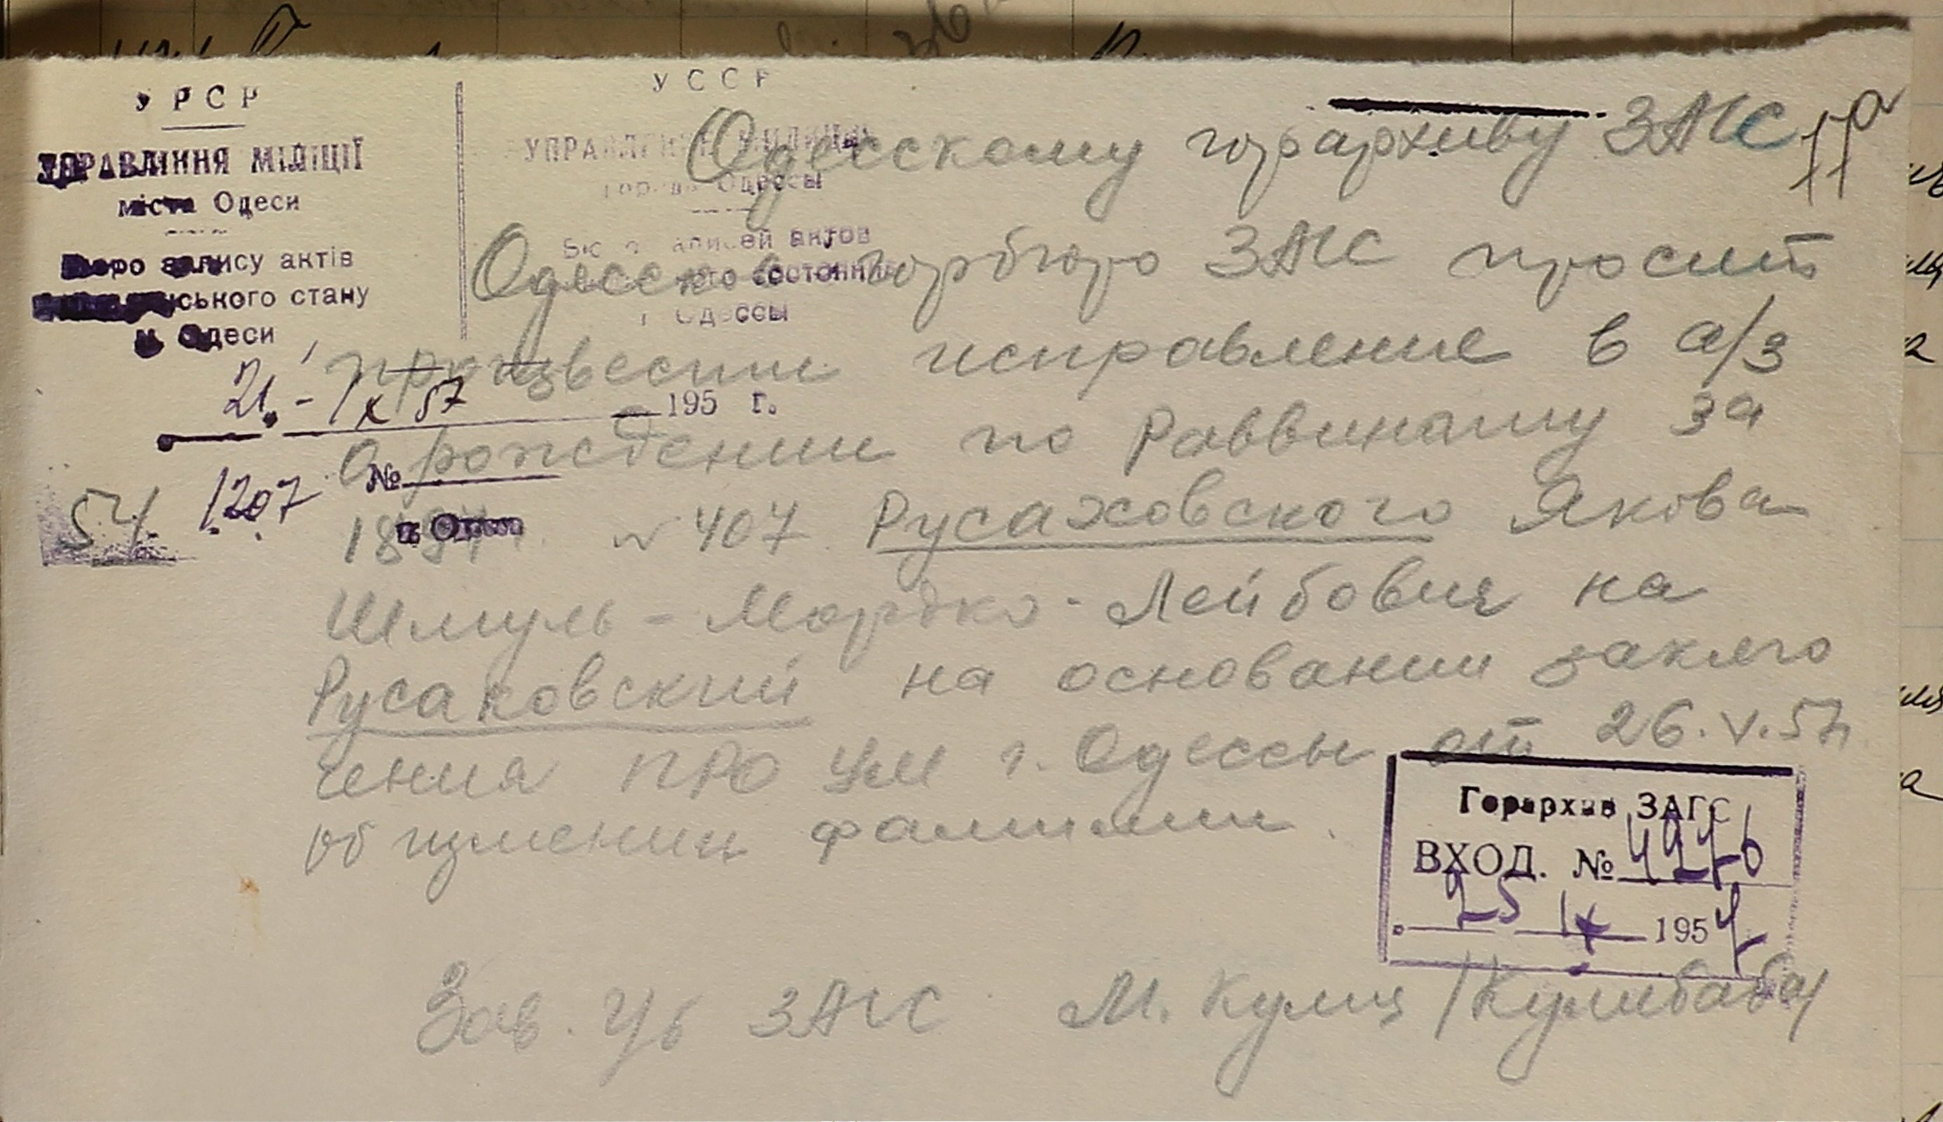 УРСР
УПРАВЛІННЯ МІЛІЦІЇ
міста Одеси
Бюро запису актів
ського стану
м. Одеси
УССР
УПРАВЛЕНИЕ МИЛИЦИИ
города Одессы
Бюро записей актов
состояния
г. Одессы
21 - IX 57 195 г.
№ 1207
г. Одесса
54
77а
Одесскому горархиву ЗАГС
Одесское горбюро ЗАГС просит
произвести исправление в а/з
о рождении по Раввинату за
1897 г. № 407 Русаховского Якова
Шмуль-Мордко-Лейбович на
Русаковский на основании заключе
чения ПРО УМ г. Одессы от 26.V.57г.
об изменении фамилии.
Горархив ЗАГС
ВХОД. № 4976
25 IX 1957
Зав. ЗАГС М. Кулиб